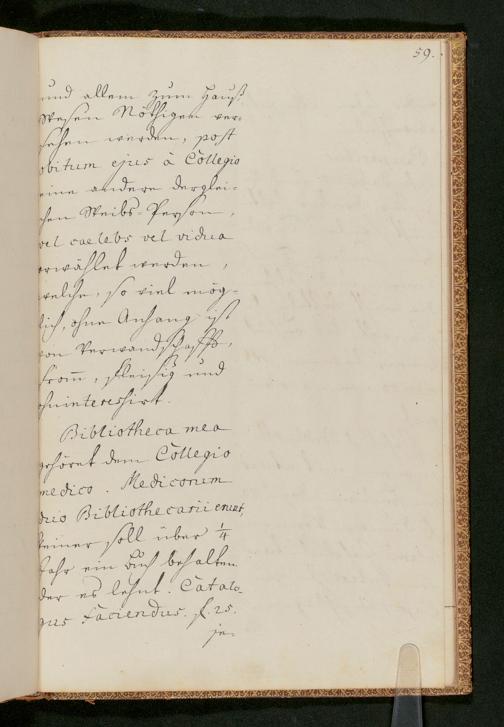 59.
und allem zum Hauß-
Wesen Nöthigem ver-
sehen werden, post
obitum ejus à Collegio
eine andere derglei-
chen Weibs-Person,
vel caelebs vel vidua
erwählet werden,
welche, so viel mög-
lich, ohne Anhang ist
von Verwandschafft,
from̅, fleissig und
ohninteressirt.
Bibliotheca mea
gehöret dem Collegio
medico. Medicorum
duo Bibliothecarii erunt,
keiner soll über 1/4
Jahr ein Buch behalten
der es lehnt. Catalo-
gus faciendus. f. 25.
je-